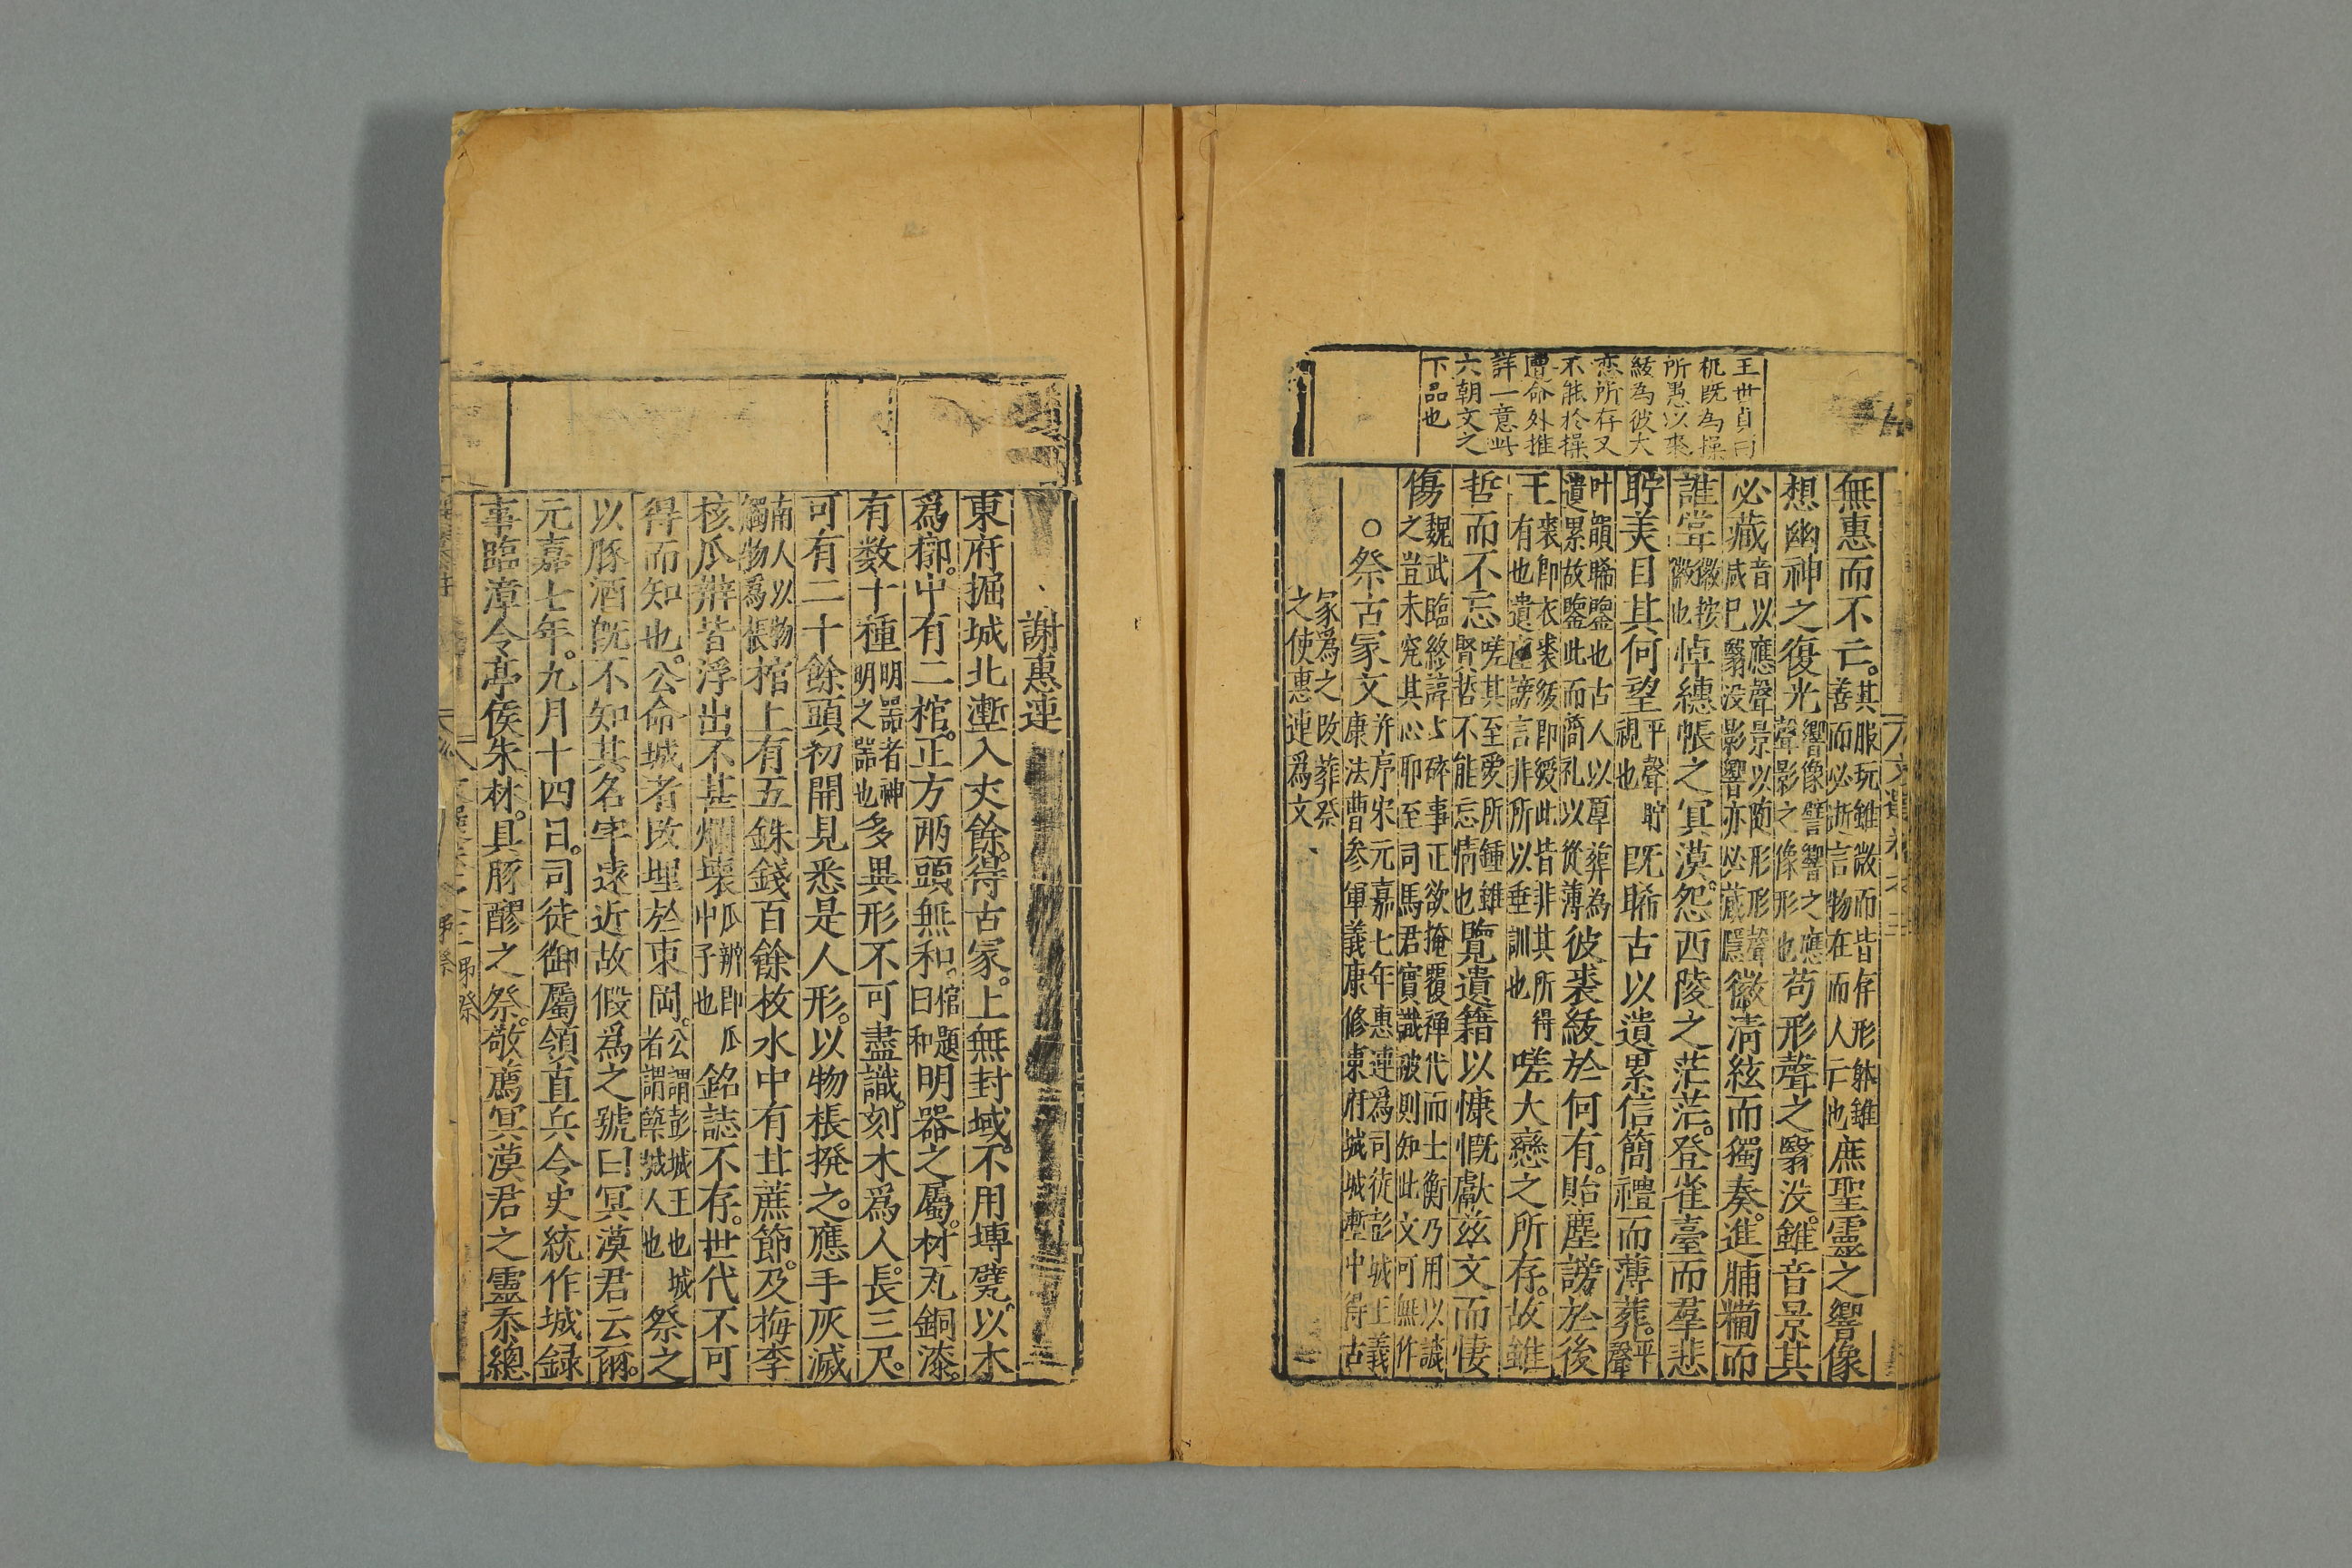 王世貞曰
机既為操
所愚以裘
紱為彼大
恋所存又
不能於操
遺命外推
詳一意此
六朝文之
下品也
無惠而不亡。其服玩雖微而皆存形躰雖善而必逝言物在而人亡也庶聖靈之響像
想幽神之復光響像譬響之應聲影之像形也苟形聲之翳没。雖音景其
必藏音以應聲景以随形形聲咸已翳没影響亦必藏隱徽清絃而獨奏。進脯糒而
誰甞徽按徽也悼繐帳之冥漠。怨西陵之茫茫。登雀臺而羣悲
眝美目其何望平聲眝視也既睎古以遺累信簡禮而薄葬。平聲
叶韻睎鑒也古人以厚葬為遺累故鑒此而簡礼以從薄彼裘紱於何有。貽塵謗於後
王裘即衣裘紱即綬此皆非其所得有也遺塵謗言非所以垂訓也嗟大戀之所存。故雖
哲而不忘嗟其至愛所鍾雖賢哲不能忘情也覽遺籍以慷慨獻茲文而悽
傷魏武臨終諄諄碎事正欲掩覆禪代而士衡乃用以誠之豈未究其心耶至司馬君實識破則知此文可無作
○祭古冢文并序宋元嘉七年惠連為司徒彭城王義康法曹參軍義康修東府城城塹中得古
冢爲之改葬祭之使惠連爲文
謝惠連
東府掘城北塹入丈餘。得古冢。上無封域。不用塼甓。以木
爲槨。中有二棺。正方兩頭無和。棺題曰和明器之屬。材瓦銅漆。
有数十種明器者神明之器也多異形不可盡識。刻木爲人。長三尺。
可有二十餘頭初開見悉是人形。以物棖撥之。應手灰滅
南人以物觸物爲棖棺上有五銖錢百餘枚水中有甘蔗節。及梅李
核瓜辦皆浮出不甚爛壊瓜辦即瓜中子也銘誌不存。世代不可
得而知也。公命城者改埋於東岡。公謂彭城王也城者謂築城人也祭之
以豚酒旣不知其名字遠近故假爲之號曰冥漠君云爾。
元嘉七年。九月十四日。司徒御屬領直兵令史統作城録
事臨漳令亭侯朱林。具豚醪之祭。敬薦冥漠君之靈忝總